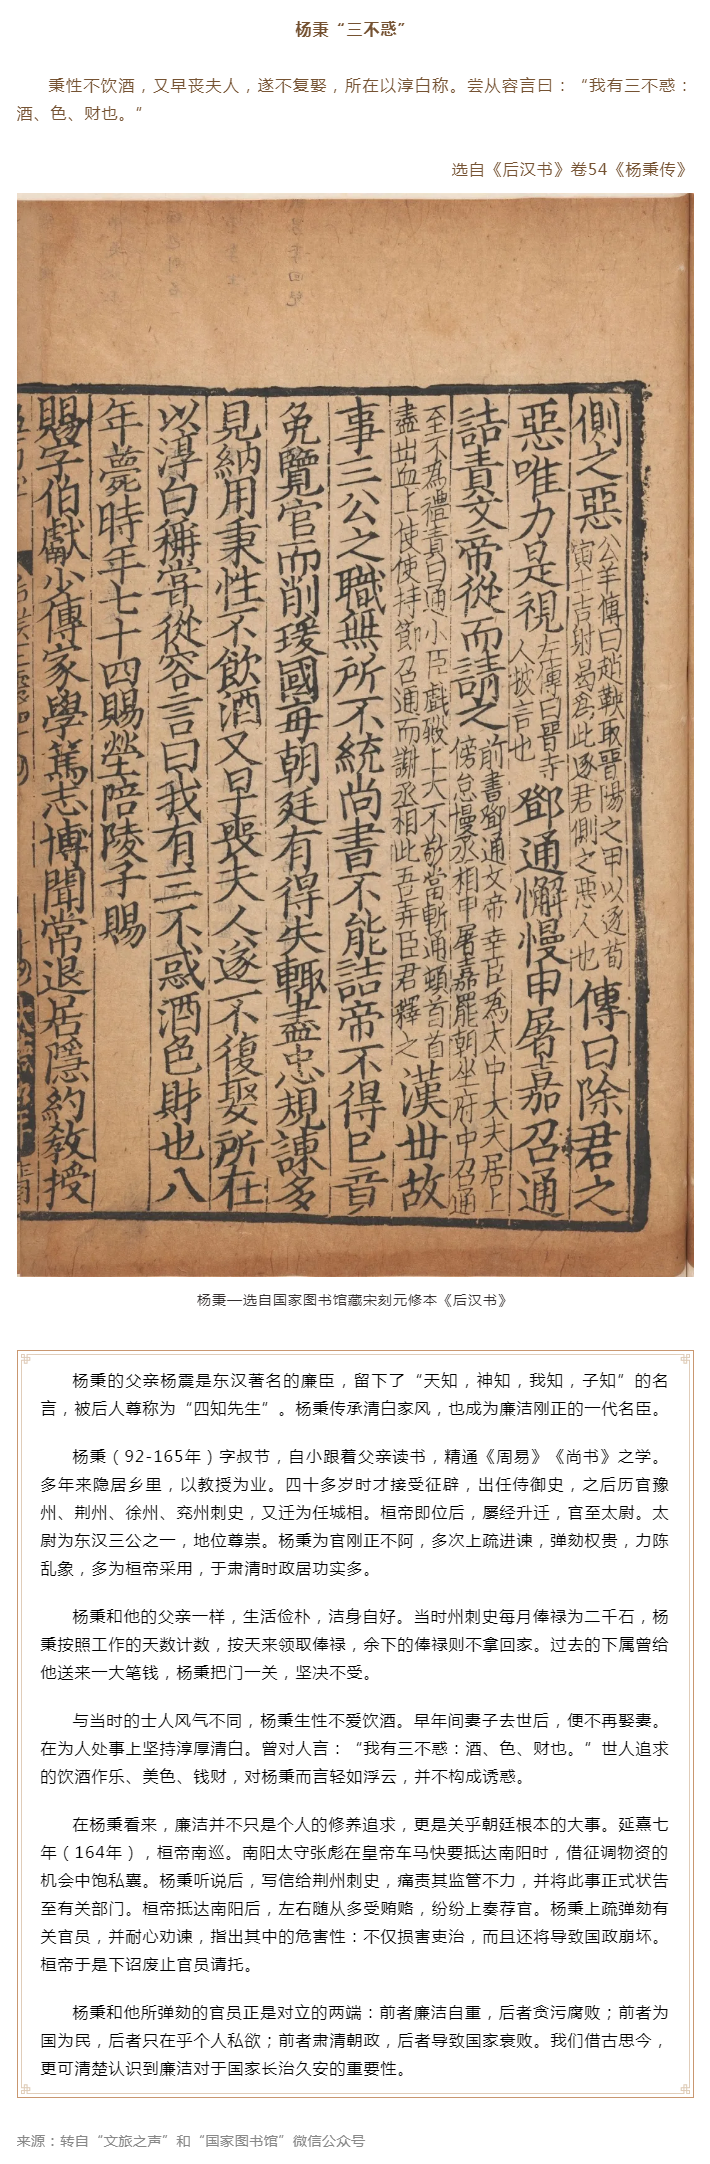 杨秉“三不惑”
秉性不饮酒，又早丧夫人，遂不复娶，所在以淳白称。尝从容言曰：“我有三不惑：
酒、色、财也。”
选自《后汉书》卷54《杨秉传》
側之惡
公羊傳曰趙鞅取晉陽之甲以逐荀
寅士吉射曷為此逐君側之惡人也
傳曰除君之
惡唯力是視
左傳曰晉寺
人披言也
鄧通懈慢申屠嘉召通
詰責文帝從而請之
前書鄧通文帝幸臣為太中大夫居上
傍怠慢丞相申屠嘉罷朝坐府中召通
至不為禮責曰通小臣戲殿上大不敬當斬通頓首首
盡出血上使使持節召通而謝丞相此吾弄臣君釋之
漢丗故
事三公之職無所不統尚書不能詰帝不得已音
免覽官而削瑗國每朝廷有得失輒盡忠規諫多
見納用秉性不飲酒又早喪夫人遂不復娶所在
以淳白稱甞從容言曰我有三不惑酒色財也八
年薨時年七十四賜塋陪陵子賜
賜字伯獻少傳家學篤志博聞常退居隱約教授
杨秉—选自国家图书馆藏宋刻元修本《后汉书》
杨秉的父亲杨震是东汉著名的廉臣，留下了“天知，神知，我知，子知”的名
言，被后人尊称为“四知先生”。杨秉传承清白家风，也成为廉洁刚正的一代名臣。
杨秉（92-165年）字叔节，自小跟着父亲读书，精通《周易》《尚书》之学。
多年来隐居乡里，以教授为业。四十多岁时才接受征辟，出任侍御史，之后历官豫
州、荆州、徐州、兖州刺史，又迁为任城相。桓帝即位后，屡经升迁，官至太尉。太
尉为东汉三公之一，地位尊崇。杨秉为官刚正不阿，多次上疏进谏，弹劾权贵，力陈
乱象，多为桓帝采用，于肃清时政居功实多。
杨秉和他的父亲一样，生活俭朴，洁身自好。当时州刺史每月俸禄为二千石，杨
秉按照工作的天数计数，按天来领取俸禄，余下的俸禄则不拿回家。过去的下属曾给
他送来一大笔钱，杨秉把门一关，坚决不受。
与当时的士人风气不同，杨秉生性不爱饮酒。早年间妻子去世后，便不再娶妻。
在为人处事上坚持淳厚清白。曾对人言：“我有三不惑：酒、色、财也。”世人追求
的饮酒作乐、美色、钱财，对杨秉而言轻如浮云，并不构成诱惑。
在杨秉看来，廉洁并不只是个人的修养追求，更是关乎朝廷根本的大事。延熹七
年（164年），桓帝南巡。南阳太守张彪在皇帝车马快要抵达南阳时，借征调物资的
机会中饱私囊。杨秉听说后，写信给荆州刺史，痛责其监管不力，并将此事正式状告
至有关部门。桓帝抵达南阳后，左右随从多受贿赂，纷纷上奏荐官。杨秉上疏弹劾有
关官员，并耐心劝谏，指出其中的危害性：不仅损害吏治，而且还将导致国政崩坏。
桓帝于是下诏废止官员请托。
杨秉和他所弹劾的官员正是对立的两端：前者廉洁自重，后者贪污腐败；前者为
国为民，后者只在乎个人私欲；前者肃清朝政，后者导致国家衰败。我们借古思今，
更可清楚认识到廉洁对于国家长治久安的重要性。
来源：转自“文旅之声”和“国家图书馆”微信公众号